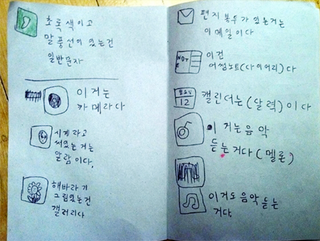 초록색이고
말풍선이 있는건
일반문자
이거는
카메라다
시계라고
써있는거는
알람이다.
해바라기
그림있는건
갤러리다
편지봉투가 있는거는
이메일이다
이건
어썸노트(다이어리)다
12
캘린더는(달력)이다
이거는음악
듣는거다(멜론)
이거도 음악듣는
거다.